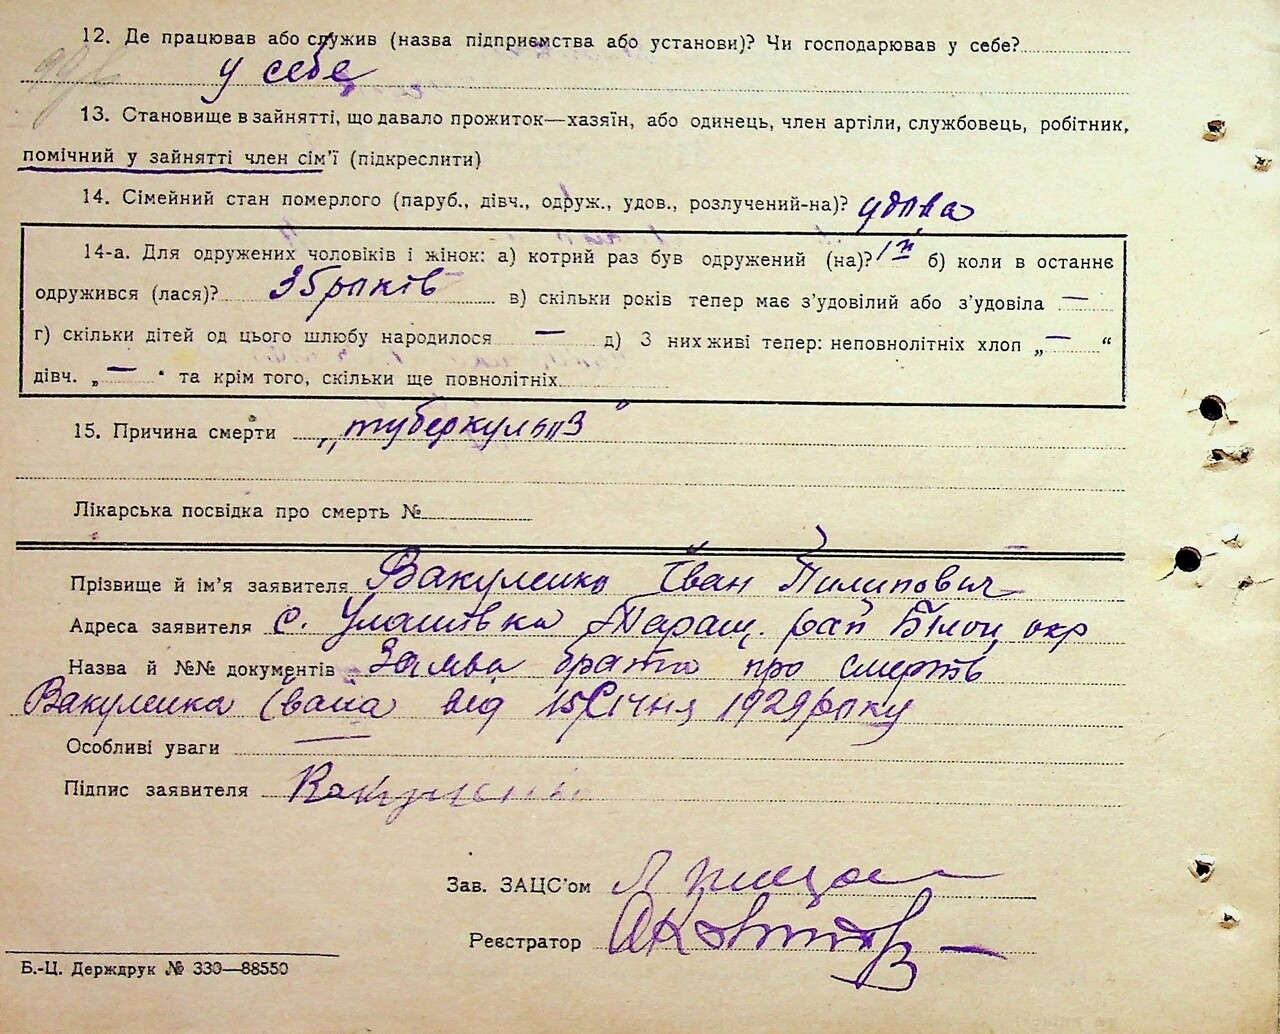 12. Де працював або служив (назва підприємства або установи)? Чи господарював у себе?
у себе
13. Становище в зайнятті, що давало прожиток—хазяїн, або одинець, член артіли, службовець, робітник,
помічний у зайнятті член сім'ї (підкреслити)
14. Сімейний стан померлого (паруб., дівч., одруж., удов., розлучений-на)? удова
14-а. Для одружених чоловіків і жінок: а) котрий раз був одружений (на)? 1й б) коли в останнє
одружився (лася)? 35 років в) скільки років тепер має з'удовілий або з'удовіла —
г) скільки дітей од цього шлюбу народилося — д) З них живі тепер: неповнолітніх хлоп „ — “
дівч. „ — “ та крім того, скільки ще повнолітніх
15. Причина смерти „туберкульоз"
Лікарська посвідка про смерть №
Прізвище й ім'я заявителя Вакуленко Іван Пилипович
Адреса заявителя с. Улашівка Таращ. рай Білоц окр
Назва й №№ документів Заява брата про смерть
Вакуленка Івана від 15 Січня 1929 року
Особливі уваги —
Підпис заявителя Вакуленко
Зав. ЗАЦС'ом
Реєстратор
Б.-Ц. Держдрук № 330—88550